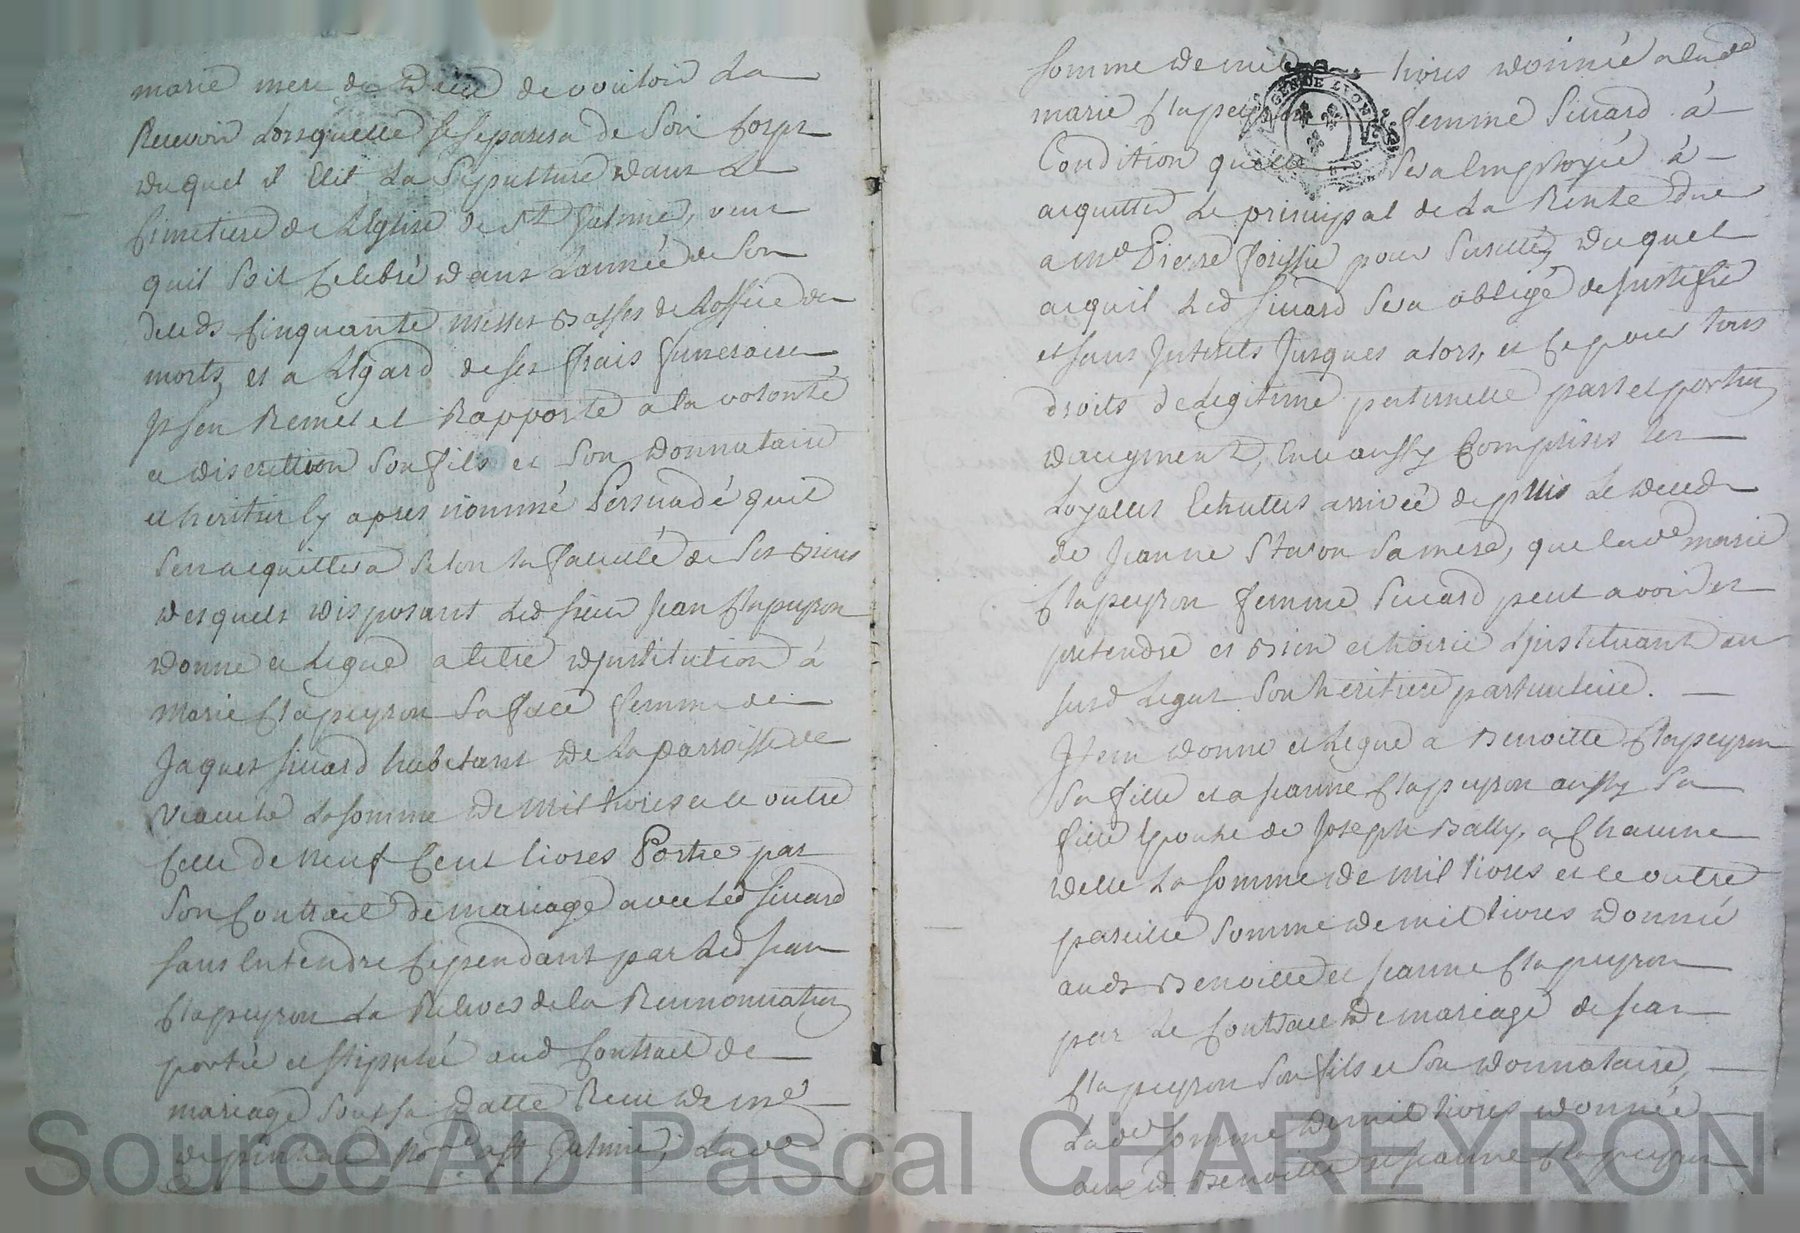 marie mere de Dieu de vouloir La
Recevoir Lorsquelle se separera de son Corps
duquel il Elit La Sepulture dans Le
Cimetiere de L'Eglise de St Galmier, veut
quil soit Celebré dans L'année de Son
deceds Cinquante Messes basses de L'office des
morts, et a L'Egard de ses frais funeraires
Il sen Remet et Rapporte a la volonté
et discretion Son fils et Son donnataire
et heritier Cy apres nommé Persuadé quil
Sen acquittera Selon la faculté de Ses biens
desquels disposant Led sieur Jean Clapeyron
donne et Legue a titre d'institution à
Marie Clapeyron Sa femme de
Jaques Sicard habitant de La parroisse de
La Somme de Mil livres et ce outre
Celle de Neuf Cent livres Portée par
Son Contract de mariage avec Led Sicard
Sans Entendre Cependant par Led Jean
Clapeyron La Relever de la Renonciation
portée et stipulée aud Contract de
mariage Sous Sa datte Recu de me
de St Galmier, Lade
Somme de mil livres donnée a lade
marie Clapeyron femme Sicard à
Condition quelle Sera Employée à
acquitter Le principal de La Rente due
a me Pierre pour duquel
acquit Led Sicard Sera obligé de justifier
et sans Interets Jusques alors, et Ce pour tous
droits de Legitime paternelle part et portion
d'augment, En ce aussy Comprises Les
Loyalles Echutes arrivée depuis Le deceds
de Jeanne Staron Sa mere, que lade marie
Clapeyron femme Sicard peut avoir et
pretendre et bien et hoirie L'instituant au
susd Legat Son heritiere particuliere.
Item donne et Legue a Benoitte Clapeyron
Sa fille et a Jeanne Clapeyron aussy Sa
fille Epouse de Joseph Bally, a Chacune
delle La Somme de mil livres et ce outre
pareille Somme de mil livres donnée
auds Benoitte et Jeanne Clapeyron
par Le Contract de mariage de Jean
Clapeyron Son fils et Son donnataire,
Lade Somme de mil livres donnée
aux d Benoitte et Jeanne Clapeyron
GEN DE LYON
Source AD Pascal CHAREYRON